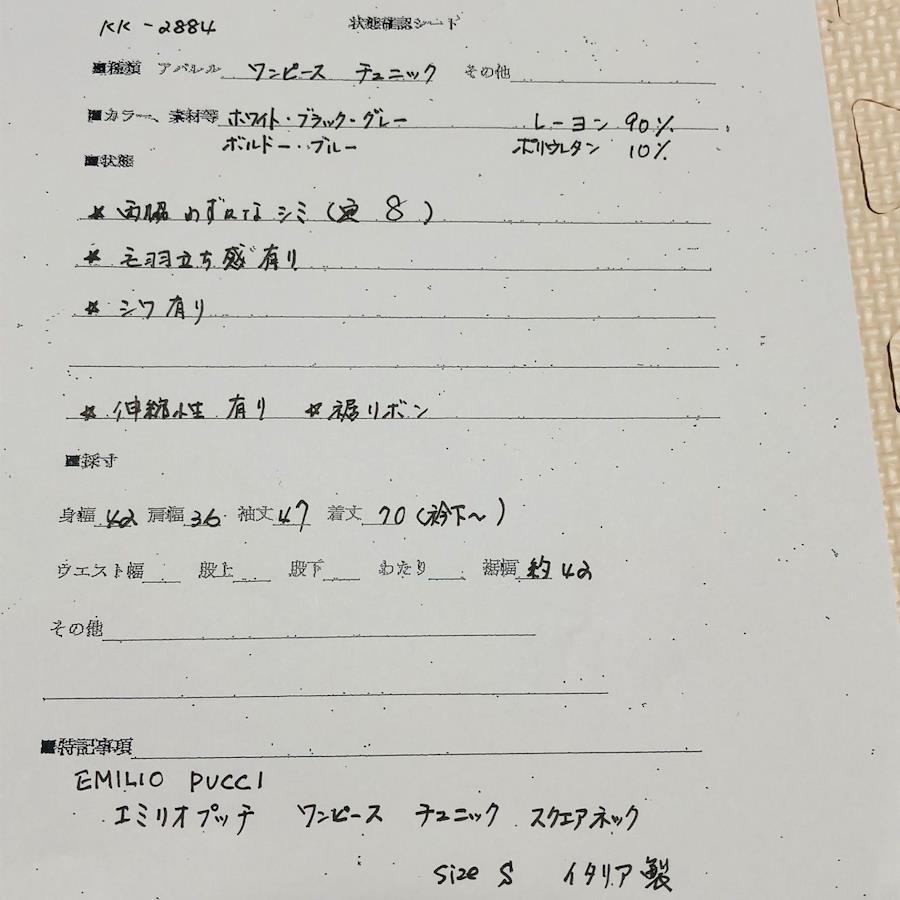 KK-2884 状態確認シート
■種類 アパレル ワンピース チュニック その他
■カラー、素材等 ホワイト・ブラック・グレー レーヨン 90%
ボルドー・ブルー ポリウレタン 10%
■状態
★ 両脇 わずかなシミ( 8 )
★ 毛羽立ち感有り
★ シワ有り
★ 伸縮性 有り ★ 裾リボン
■採寸
身幅 42 肩幅 36 袖丈 47 着丈 70(衿下〜)
ウエスト幅 股上 股下 わたり 裾幅 約42
その他
■特記事項
EMILIO PUCCI
エミリオプッチ ワンピース チュニック スクエアネック
size S イタリア製